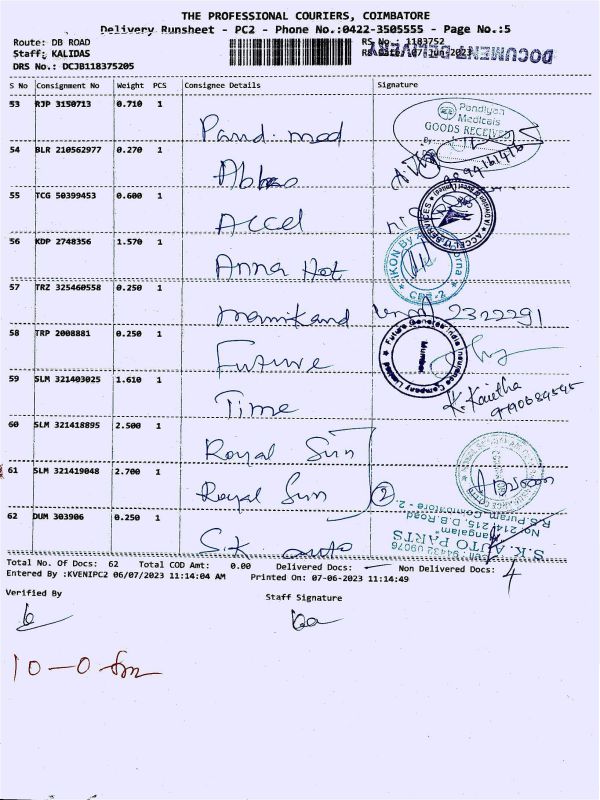 THE PROFESSIONAL COURIERS, COIMBATORE
Delivery Runsheet - PC2 - Phone No.:0422-3505555 - Page No.:5
Route: DB ROAD
RS No.: 1183752
Staff: KALIDAS
RS Date: 07-Jun-2023
DOCUMENT-DELIVERY
DRS No.: DCJB118375205
S No Consignment No Weight PCS Consignee Details Signature
53 RJP 3150713 0.710 1
Pand. med
Pandiyan Medicals
GOODS RECEIVED
By
54 BLR 210562977 0.270 1
9894161416
55 TCG 50399453 0.600 1
Accel
ACCEL IT SERVICES
56 KDP 2748356 1.570 1
Anna Hot
IKON By
CBE-2
57 TRZ 325460558 0.250 1
2322291
58 TRP 2008881 0.250 1
Future
Future Generali India Insurance Company Limited
Mumbai
59 SLM 321403025 1.610 1
Time
K. Kavitha
60 SLM 321418895 2.500 1
Royal Sun
61 SLM 321419048 2.700 1
Royal Sun
2
62 DUM 303906 0.250 1
S.K auto
S.K. AUTO PARTS
"Mangalam"
No: 214, 215, D.B.Road
R.S.Puram, Coimbatore - 2.
Cell: 94432 09076
Total No. Of Docs: 62 Total COD Amt: 0.00 Delivered Docs: Non Delivered Docs: 4
Entered By :KVENIPC2 06/07/2023 11:14:04 AM Printed On: 07-06-2023 11:14:49
Verified By
Staff Signature
10-0